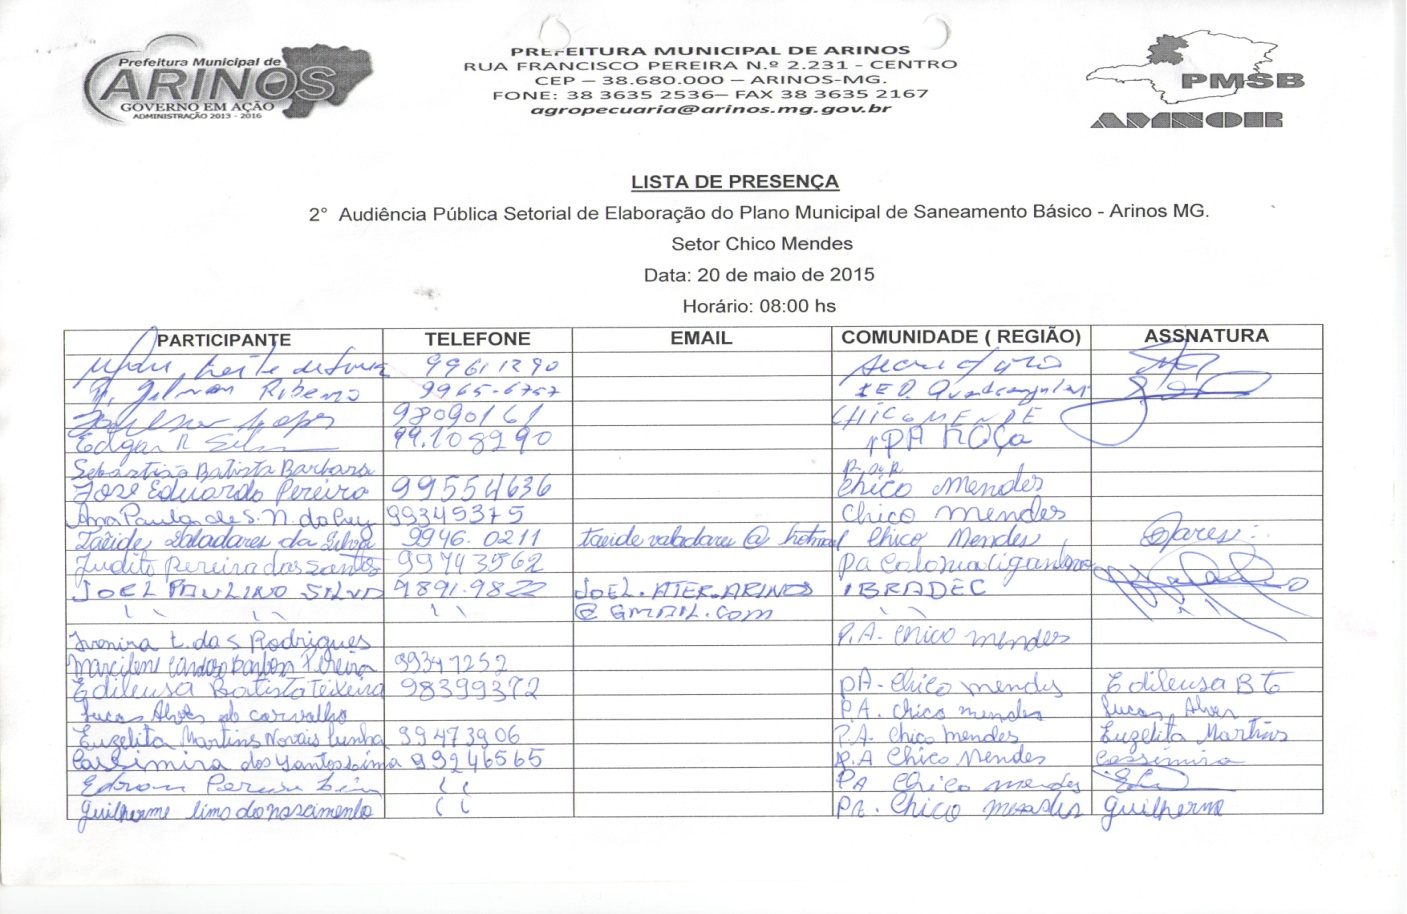 Prefeitura Municipal de
ARINOS
GOVERNO EM AÇÃO
ADMINISTRAÇÃO 2013 - 2016
PREFEITURA MUNICIPAL DE ARINOS
RUA FRANCISCO PEREIRA N.º 2.231 - CENTRO
CEP – 38.680.000 – ARINOS-MG.
FONE: 38 3635 2536– FAX 38 3635 2167
agropecuaria@arinos.mg.gov.br
PMSB
AMNOR
LISTA DE PRESENÇA
2° Audiência Pública Setorial de Elaboração do Plano Municipal de Saneamento Básico - Arinos MG.
Setor Chico Mendes
Data: 20 de maio de 2015
Horário: 08:00 hs
PARTICIPANTE TELEFONE EMAIL COMUNIDADE ( REGIÃO) ASSNATURA
99611290
Gilman Ribeiro 9965-6757 I E Q Quadrangular
98090161 CHICO MENDE
Edgar R Silva 99.108290 PA ROÇA
Sebastião Batista Barbara
José Eduardo Pereira 99554636 Chico Mendes
Ana Paula de S. N. da 99345375 Chico mendes
Taeide Valadares da Silva 9946.0211 taeidevaladares@hotmail Chico Mendes
Judite Pereira dos Santos 99743562 pa Colonia
JOEL PAULINO SILVA 9891.9822 JOEL.ATER.ARINOS IBRADEC
" " " @GMAIL.COM "
Ivenira L. da S Rodrigues P.A. Chico mendes
Marcilene Cardoso Barbosa Pereira 99341252
Edileusa Batista Teixeira 98399372 PA- Chico mendes Edileusa B T
Lucas Alves de carvalho P.A. Chico mendes Lucas Alves
Euzelita Martins Novais Cunha 99473906 P.A. Chico mendes Euzelita Martins
Cassimira dos Santos 99246565 P.A Chico Mendes Cassimira
Edson Pereira " PA Chico mendes
Guilherme lima do nascimento " PA. Chico mendes Guilherme